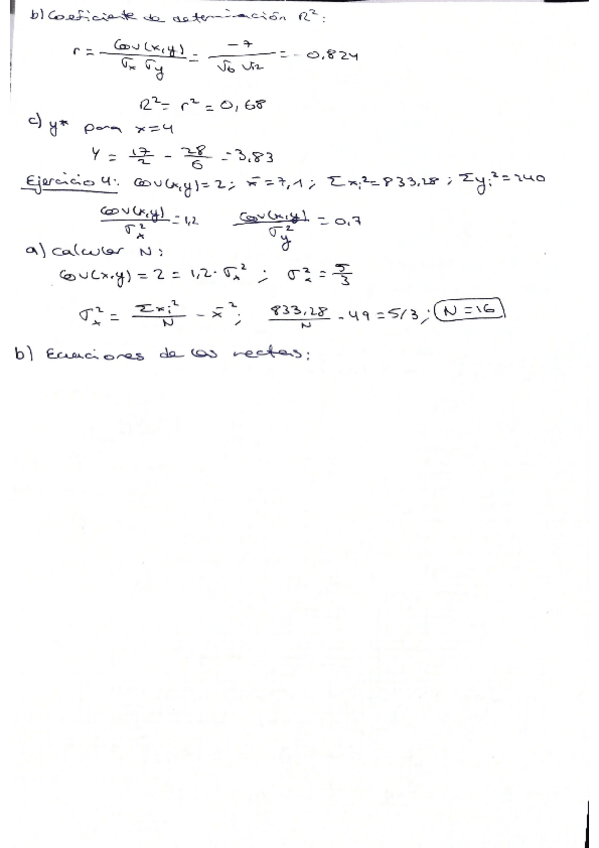 b) Coeficiente de determinación R²:
r = Cov(x,y) / σx σy = -7 / √6 √12 = -0,824
R² = r² = 0,68
c) y* para x=4
Y = 17/2 - 28/6 = 3,83
Ejercicio 4: Cov(x,y)=2; x̄=7,1; Σxi²=833,28; Σyi²=240
Cov(x,y)/σx² = 1,2 Cov(x,y)/σy² = 0,7
a) Calcular N:
Cov(x,y) = 2 = 1,2·σx²; σx² = 5/3
σx² = Σxi²/N - x̄²; 833,28/N - 49 = 5/3; N=16
b) Ecuaciones de las rectas: